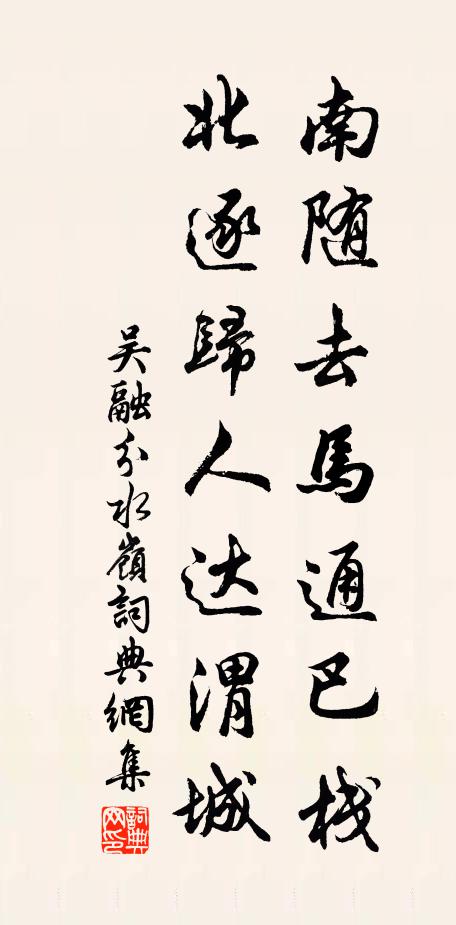 南随去馬通巴栈
北逐歸人达渭城
吴融分水嶺詞典網集
詞典網印